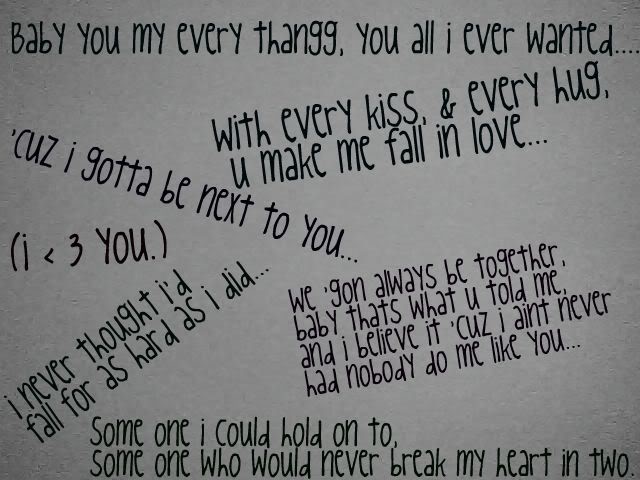 Baby you my every thangg, you all i ever wanted....
With every kiss, & every hug,
u make me fall in love...
'cuz i gotta be next to you...
(i < 3 you.)
i never thought i'd
fall for as hard as i did...
we 'gon always be together,
baby thats what u told me,
and i believe it 'cuz i aint never
had nobody do me like you...
Some one i could hold on to,
some one who would never break my heart in two.